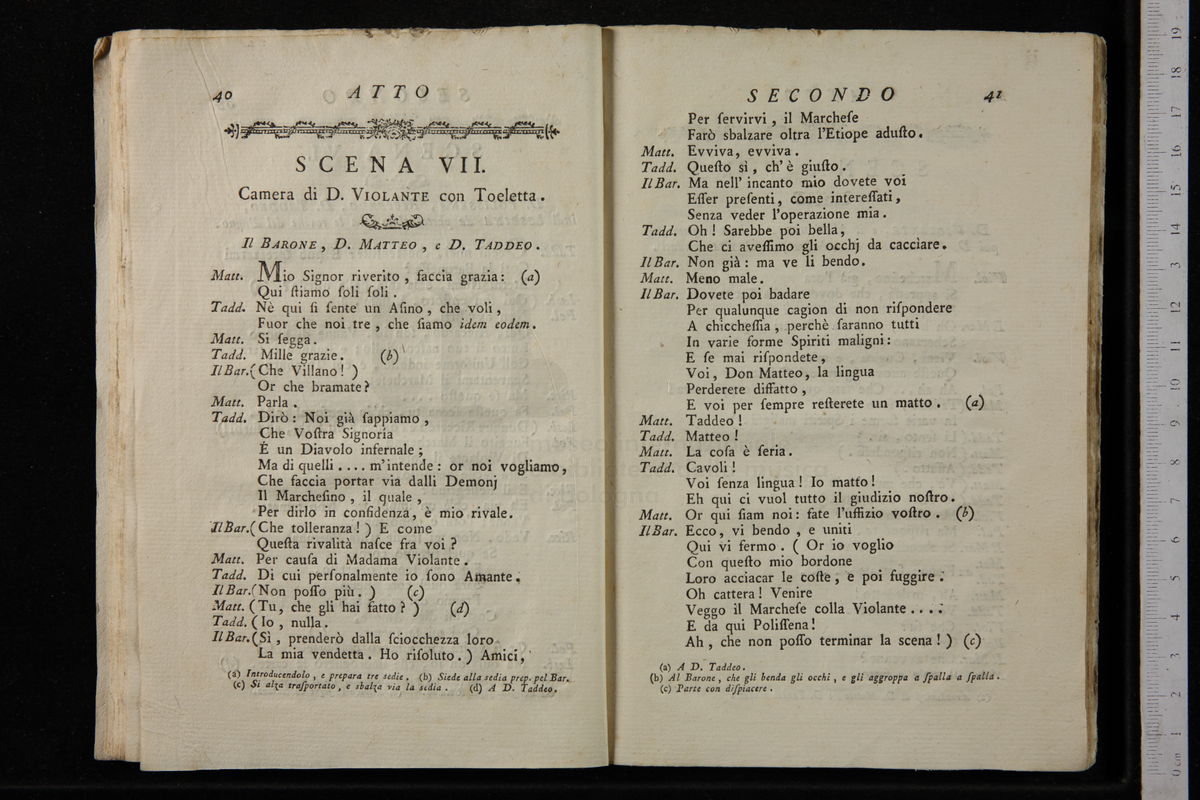 40 ATTO
SCENA VII.
Camera di D. VIOLANTE con Toeletta.
Il BARONE, D. MATTEO, e D. TADDEO.
Matt. Mio Signor riverito, faccia grazia: (a)
Qui ſtiamo ſoli ſoli.
Tadd. Nè qui ſi ſente un Aſino, che voli,
Fuor che noi tre, che ſiamo idem eodem.
Matt. Si ſegga.
Tadd. Mille grazie. (b)
Il Bar. (Che Villano! )
Or che bramate?
Matt. Parla.
Tadd. Dirò: Noi già ſappiamo,
Che Voſtra Signoria
È un Diavolo infernale;
Ma di quelli.... m'intende: or noi vogliamo,
Che faccia portar via dalli Demonj
Il Marcheſino, il quale,
Per dirlo in confidenza, è mio rivale.
Il Bar. (Che tolleranza! ) E come
Queſta rivalità naſce fra voi?
Matt. Per cauſa di Madama Violante.
Tadd. Di cui perſonalmente io ſono Amante.
Il Bar. (Non poſſo più. ) (c)
Matt. (Tu, che gli hai fatto? ) (d)
Tadd. (Io, nulla.
Il Bar. (Sì, prenderò dalla ſciocchezza loro
La mia vendetta. Ho riſoluto. ) Amici,
(a) Introducendolo, e prepara tre sedie. (b) Siede alla sedia prep. pel Bar.
(c) Si alza traſportato, e sbalza via la sedia. (d) A D. Taddeo.
SECONDO 41
Per ſervirvi, il Marcheſe
Farò sbalzare oltra l'Etiope aduſto.
Matt. Evviva, evviva.
Tadd. Queſto sì, ch'è giuſto.
Il Bar. Ma nell' incanto mio dovete voi
Eſſer preſenti, come intereſſati,
Senza veder l'operazione mia.
Tadd. Oh! Sarebbe poi bella,
Che ci aveſſimo gli occhj da cacciare.
Il Bar. Non già: ma ve li bendo.
Matt. Meno male.
Il Bar. Dovete poi badare
Per qualunque cagion di non riſpondere
A chiccheſſia, perchè ſaranno tutti
In varie forme Spiriti maligni:
E ſe mai riſpondete,
Voi, Don Matteo, la lingua
Perderete diffatto,
E voi per ſempre reſterete un matto. (a)
Matt. Taddeo!
Tadd. Matteo!
Matt. La coſa è ſeria.
Tadd. Cavoli!
Voi ſenza lingua! Io matto!
Eh qui ci vuol tutto il giudizio noſtro.
Matt. Or qui ſiam noi: fate l'uffizio voſtro. (b)
Il Bar. Ecco, vi bendo, e uniti
Qui vi fermo. ( Or io voglio
Con queſto mio bordone
Loro acciacar le coſte, e poi fuggire.
Oh cattera! Venire
Veggo il Marcheſe colla Violante....
E da qui Poliſſena!
Ah, che non poſſo terminar la scena! ) (c)
(a) A D. Taddeo.
(b) Al Barone, che gli benda gli occhi, e gli aggroppa a ſpalla a ſpalla.
(c) Parte con diſpiacere.